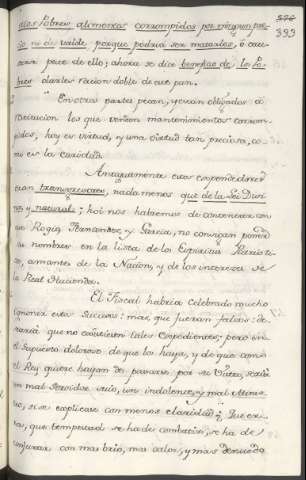 393
dios Pobres alimentos corrompidos por ningun pre-
cio ni de valde, porque podria ser matarlos, ó cau-
sarse peste de ello; ahora se dice beneficio de los Po-
bres darles racion doble de ese pan.
En otras partes pecan, y eran obligados á
restitucion los que vendian mantenimientos corrom-
pidos, hoy es virtud, y una virtud tan preciosa, co-
mo es la caridad.
Antiguamente estos expendedores
eran transgresores, nada menos que de la Lei Divi-
na y natural; hoi nos habremos de contentar con
un Rogix Fernandez y Garcia, no consigan poner
su nombre en la lista de los Espiritus Patrioti-
cos, amantes de la Nacion, y de los intereses de
la Real Hacienda.
El Fiscal habria celebrado mucho
ignorar estos sucesos: mas, que fueran falsos: de-
searia que no existiesen tales expedientes; pero en
el supuesto doloroso de que los haya, y de que como
el Rey quiere hayan de pasarse por su Vista, seria
un mal servidor suyo, un indolente, y mal
si se explicase con menos claridad,
que tempestad se ha de combatir, se ha de
conjurar con mas brio, mas calor, y mas denuedo